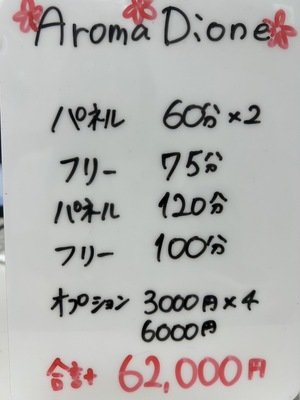 Aroma Dione
パネル 60分×2
フリー 75分
パネル 120分
フリー 100分
オプション 3000円×4
6000円
合計 62,000円